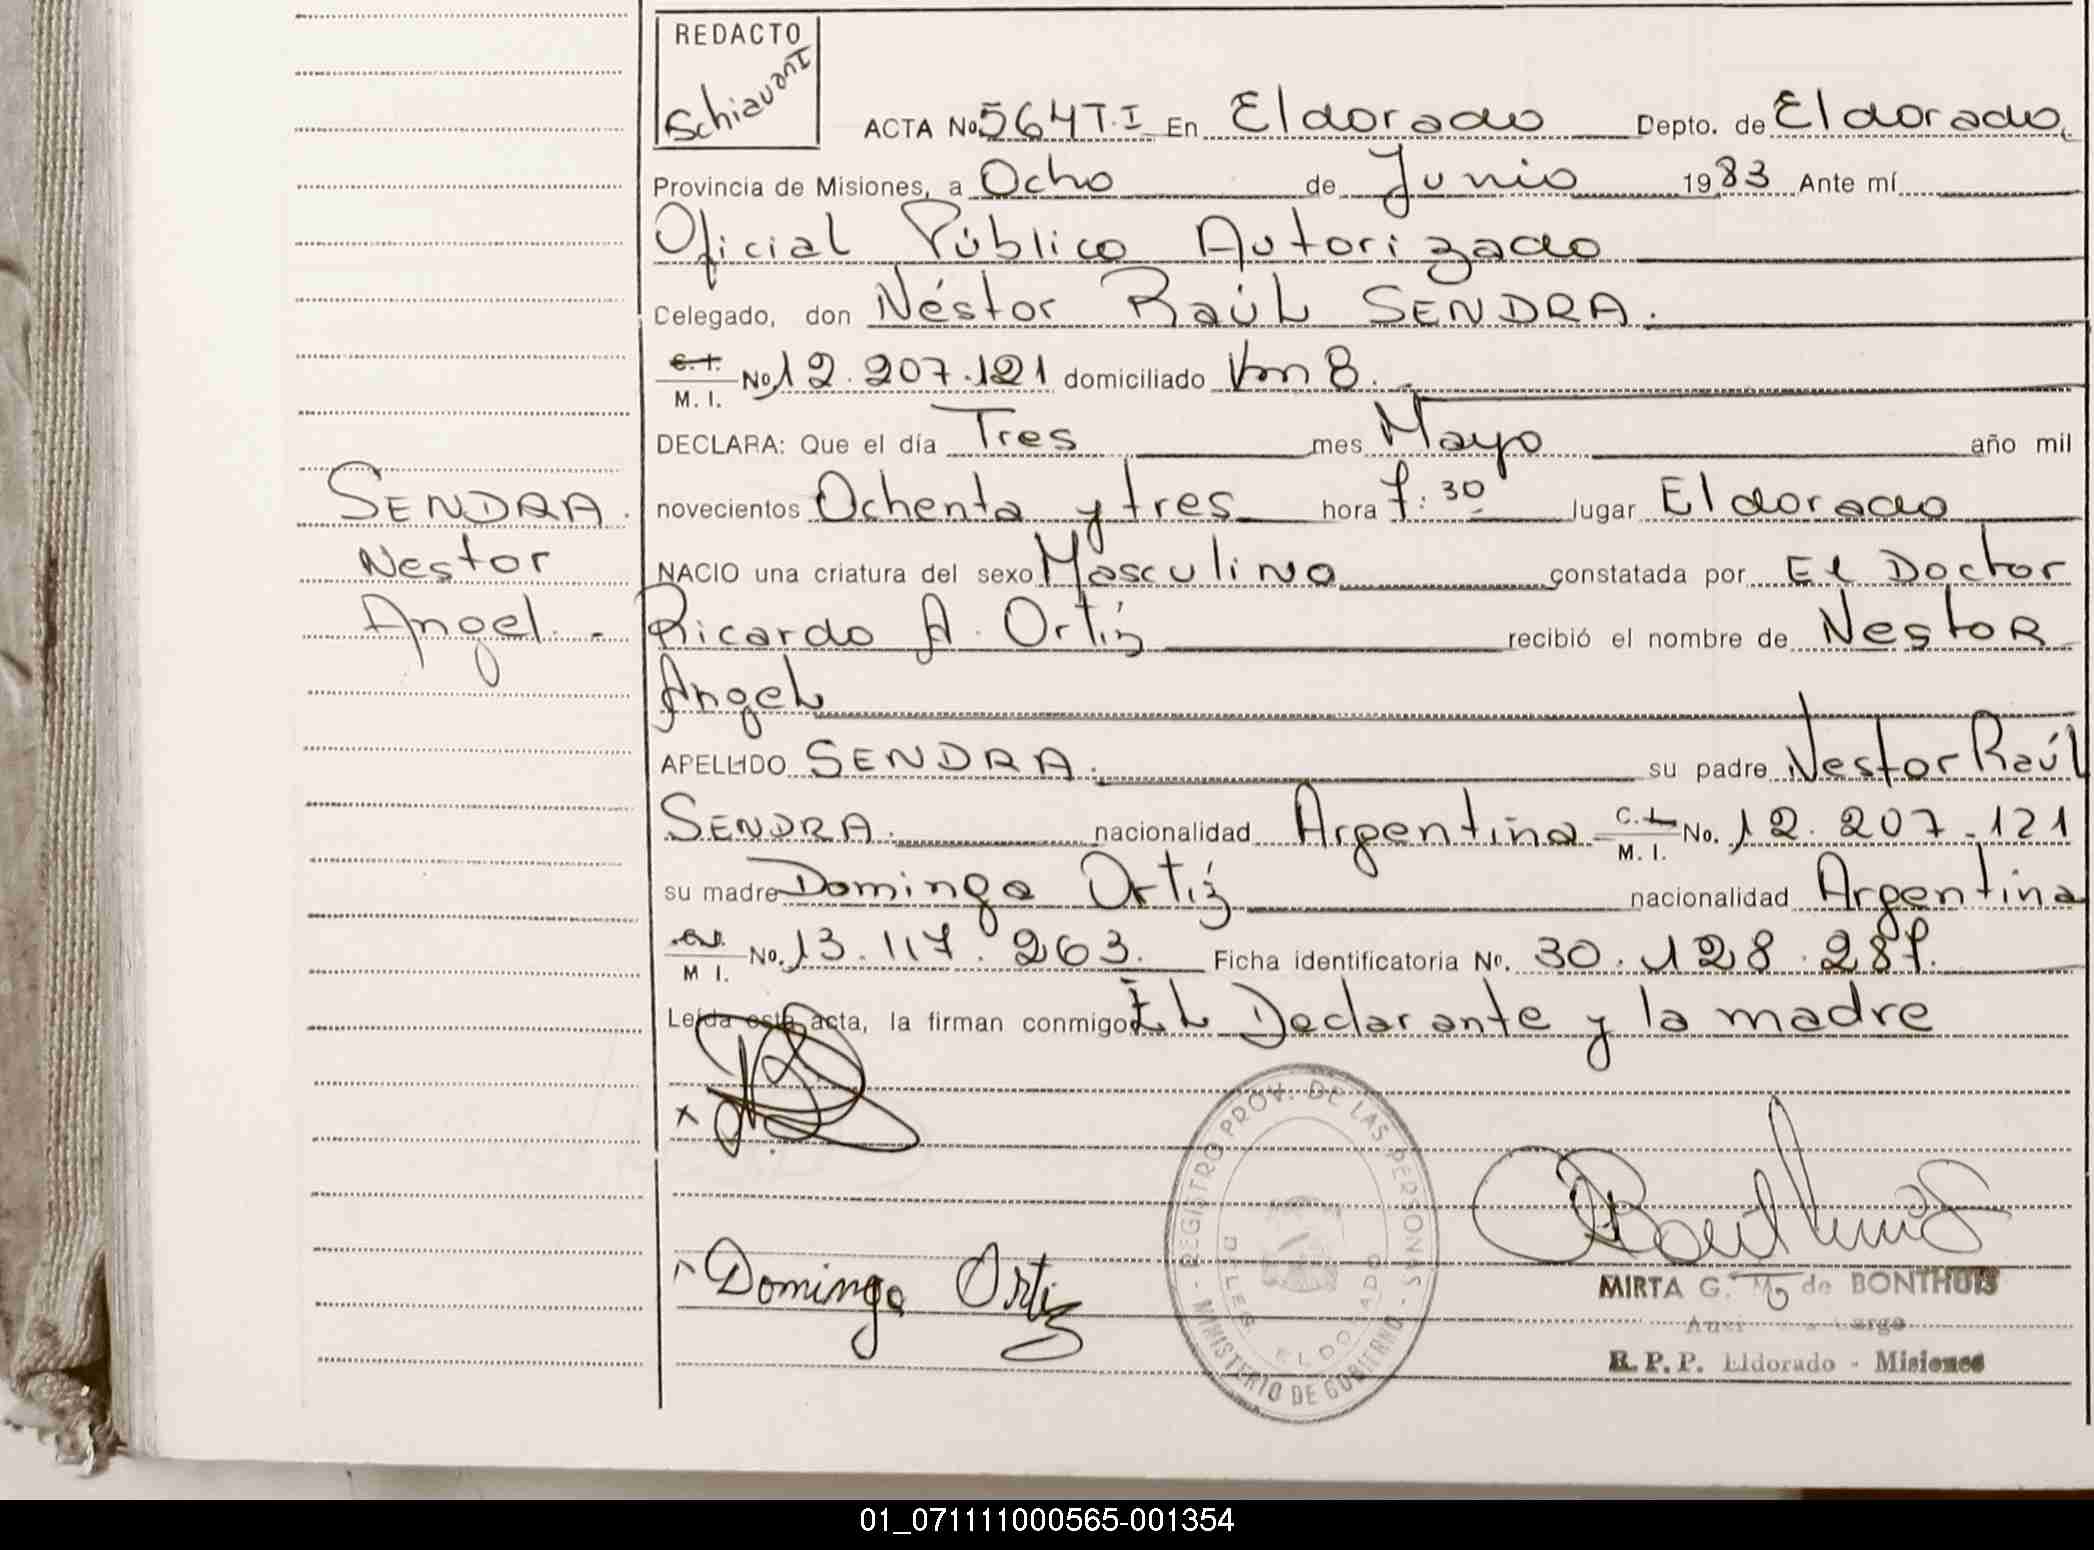 REDACTO
Schiavoni
ACTA No. 564 T.I En Eldorado Depto. de Eldorado,
Provincia de Misiones, a Ocho de Junio 1983 Ante mí
Oficial Público Autorizado
Celegado, don Néstor Raúl SENDRA.
C.I. M. I. No. 12.207.121 domiciliado Km 8.
DECLARA: Que el día Tres mes Mayo año mil
novecientos Ochenta y tres hora 9:30 lugar Eldorado
NACIO una criatura del sexo Masculino constatada por El Doctor
Ricardo A. Ortíz recibió el nombre de Nestor
Angel
APELLIDO SENDRA. su padre Nestor Raúl
SENDRA. nacionalidad Argentina C.I. M. I. No. 12.207.121
su madre Dominga Ortíz nacionalidad Argentina
M I. No. 13.117.263. Ficha identificatoria No. 30.128.289.
Leída esta acta, la firman conmigo El Declarante y la madre
SENDRA.
Nestor
Angel.-
x
Dominga Ortiz
REGISTRO PROV. DE LAS PERSONAS - MINISTERIO DE GOBIERNO -
ELDORADO
MIRTA G. M. de BONTHUIS
R. P. P. Eldorado - Misiones
01_071111000565-001354